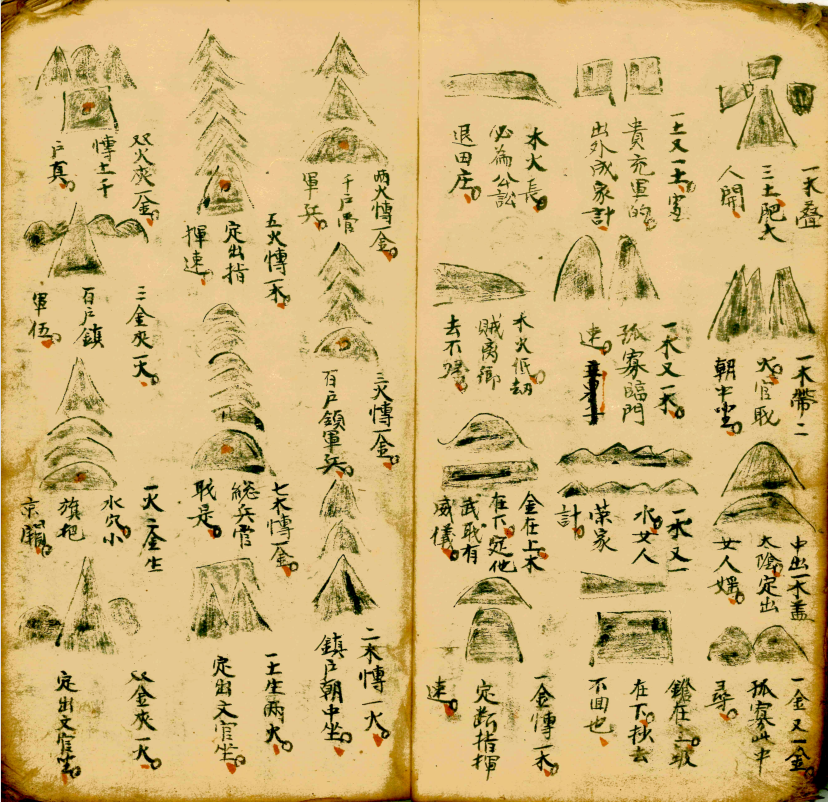 一木叠
三土肥大
人開
一土又一土富
貴充軍的
出外成家計
木火長
必為公訟
退田庄
一木帶二
火官职
朝中坐
一木又一木
孤寡臨門
速
木火低劫
賊离鄉
去不歸
中出一木盖
太陰定出
女人婬
一水又一
水女人
榮家
計
金在上木
在下定他
武职有
威儀
一金又一金
孤寡此中
尋
鎗在上
在下
不回也
一金慱一木
定斷指揮
速
兩火慱一金
千户管
軍兵
五火慱一木
定出指
揮速
双火夾一金
慱土千
户真
三火慱一金
百户領軍兵
七木慱一金
総兵官
职是
三金夾一火
百户鎮
軍伍
二木慱一火
鎮户朝中坐
一土生兩火
定出文官坐
一火二金生
水穴小
旗把
京
双金夾一火
定出文官坐